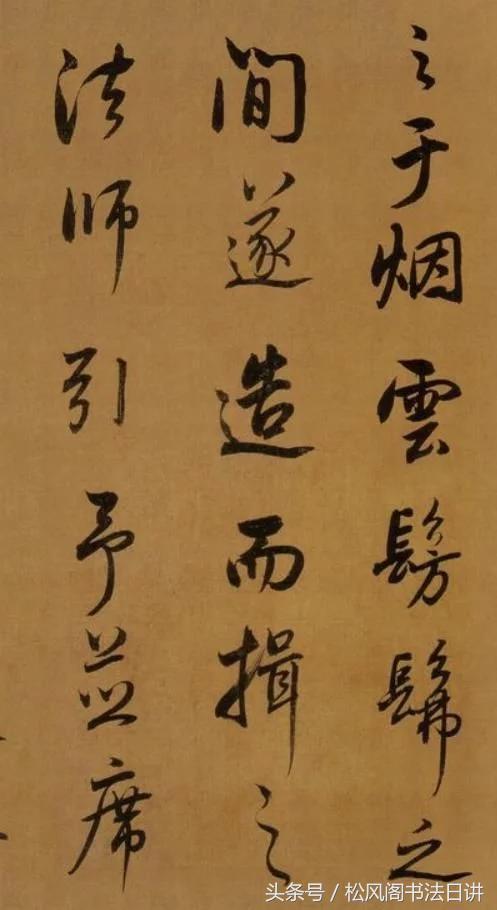 之于烟雲髣髴之
間遂造而揖之
法師引予並席
头条号／松风阁书法日讲